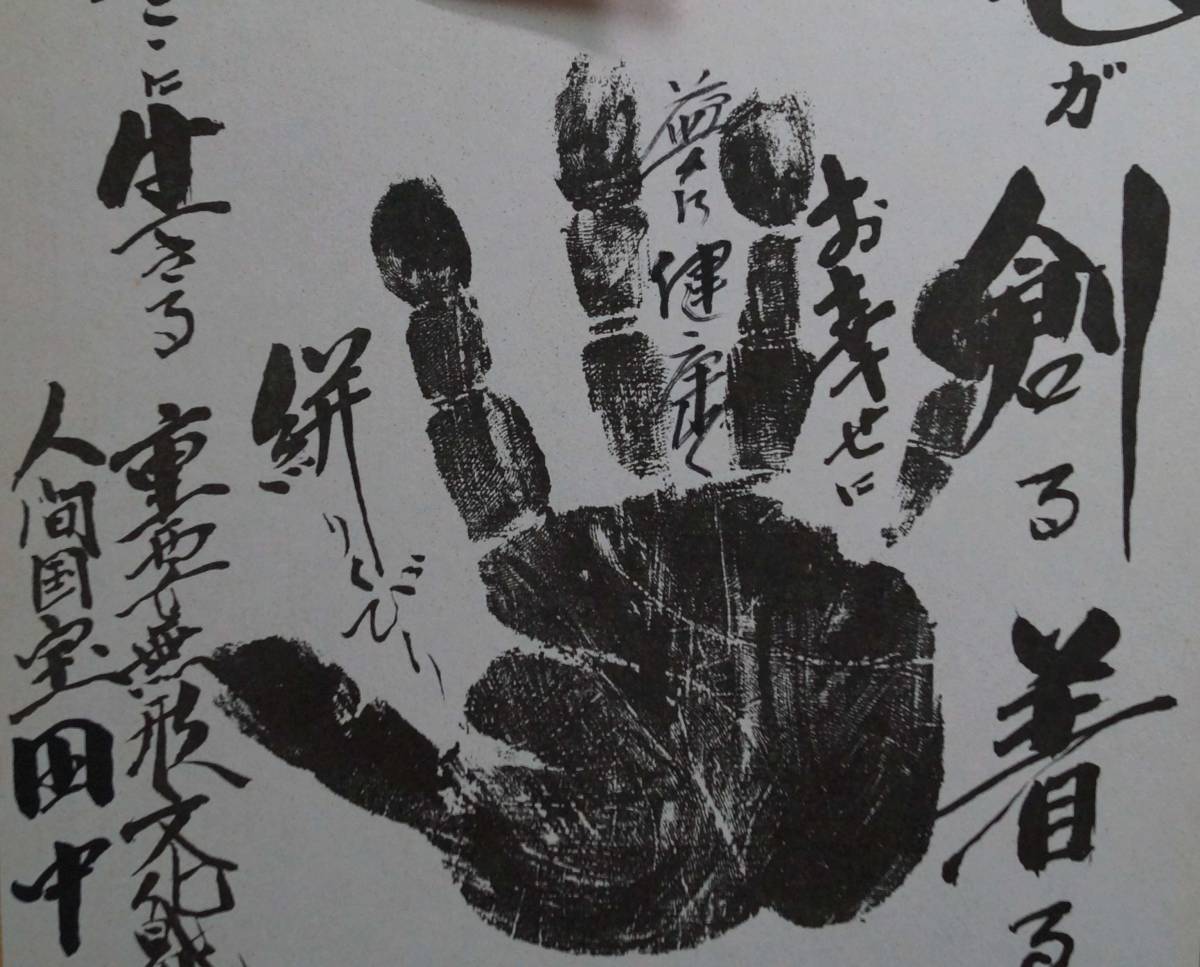 が創る着る
お幸せに
益々に健康
絣
こに生きる
重要無形文化
人間国宝田中